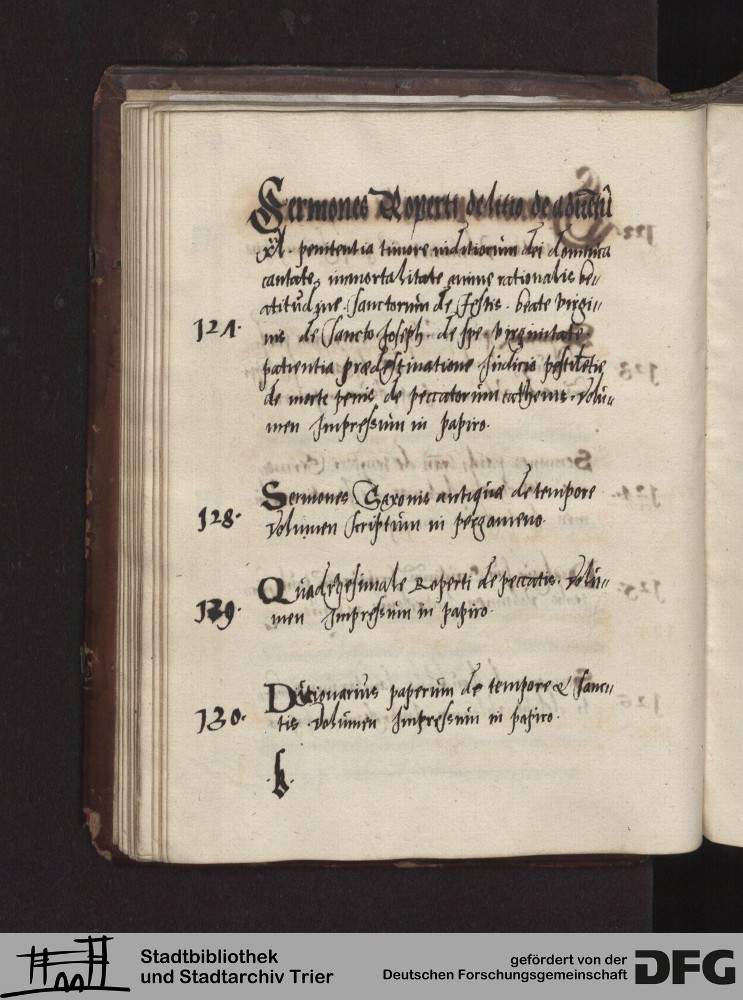 Sermones Roperti de litio de aduētū
Xl. penitentia timore iuditiorum dei dominica
cantate, immortalitate anime rationalis be„
atitudine. Sanctorum de festis. beate virgi„
121. nis de sancto Joseph. de spe. virginitate
patientia prædestinatione Judicio pestilētie
de morte penis de peccatorum cathenis. Volu„
men Impressum in papiro.
Sermones Saxonis antiquæ de tempore
128. Volumen scriptum in pergameno
Quadragesimale Roperti de peccatis. Volu„
129. men Impressum in papiro.
Dictionarius paperum de tempore & sanc„
130. tis Volumen Impressum in papiro.
.k.
Stadtbibliothek
und Stadtarchiv Trier
gefördert von der
Deutschen Forschungsgemeinschaft
DFG